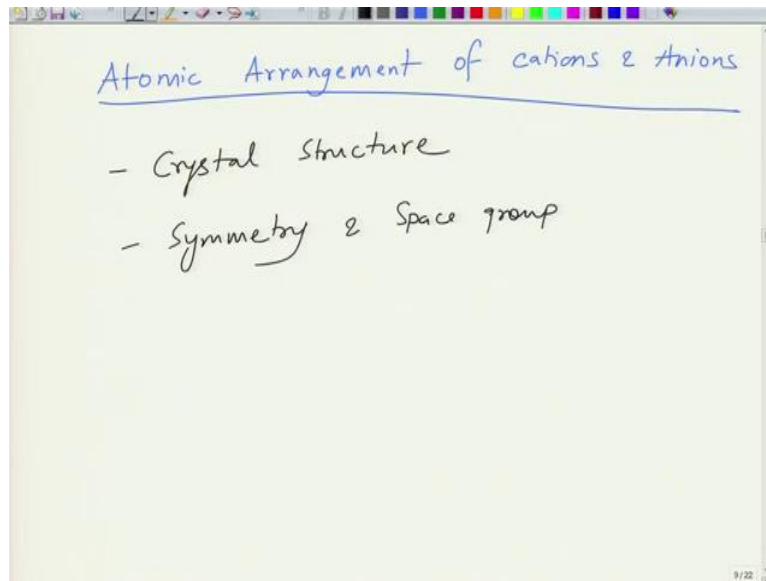 Atomic Arrangement of cations & Anions
- Crystal Structure
- Symmetry & Space group
9/22